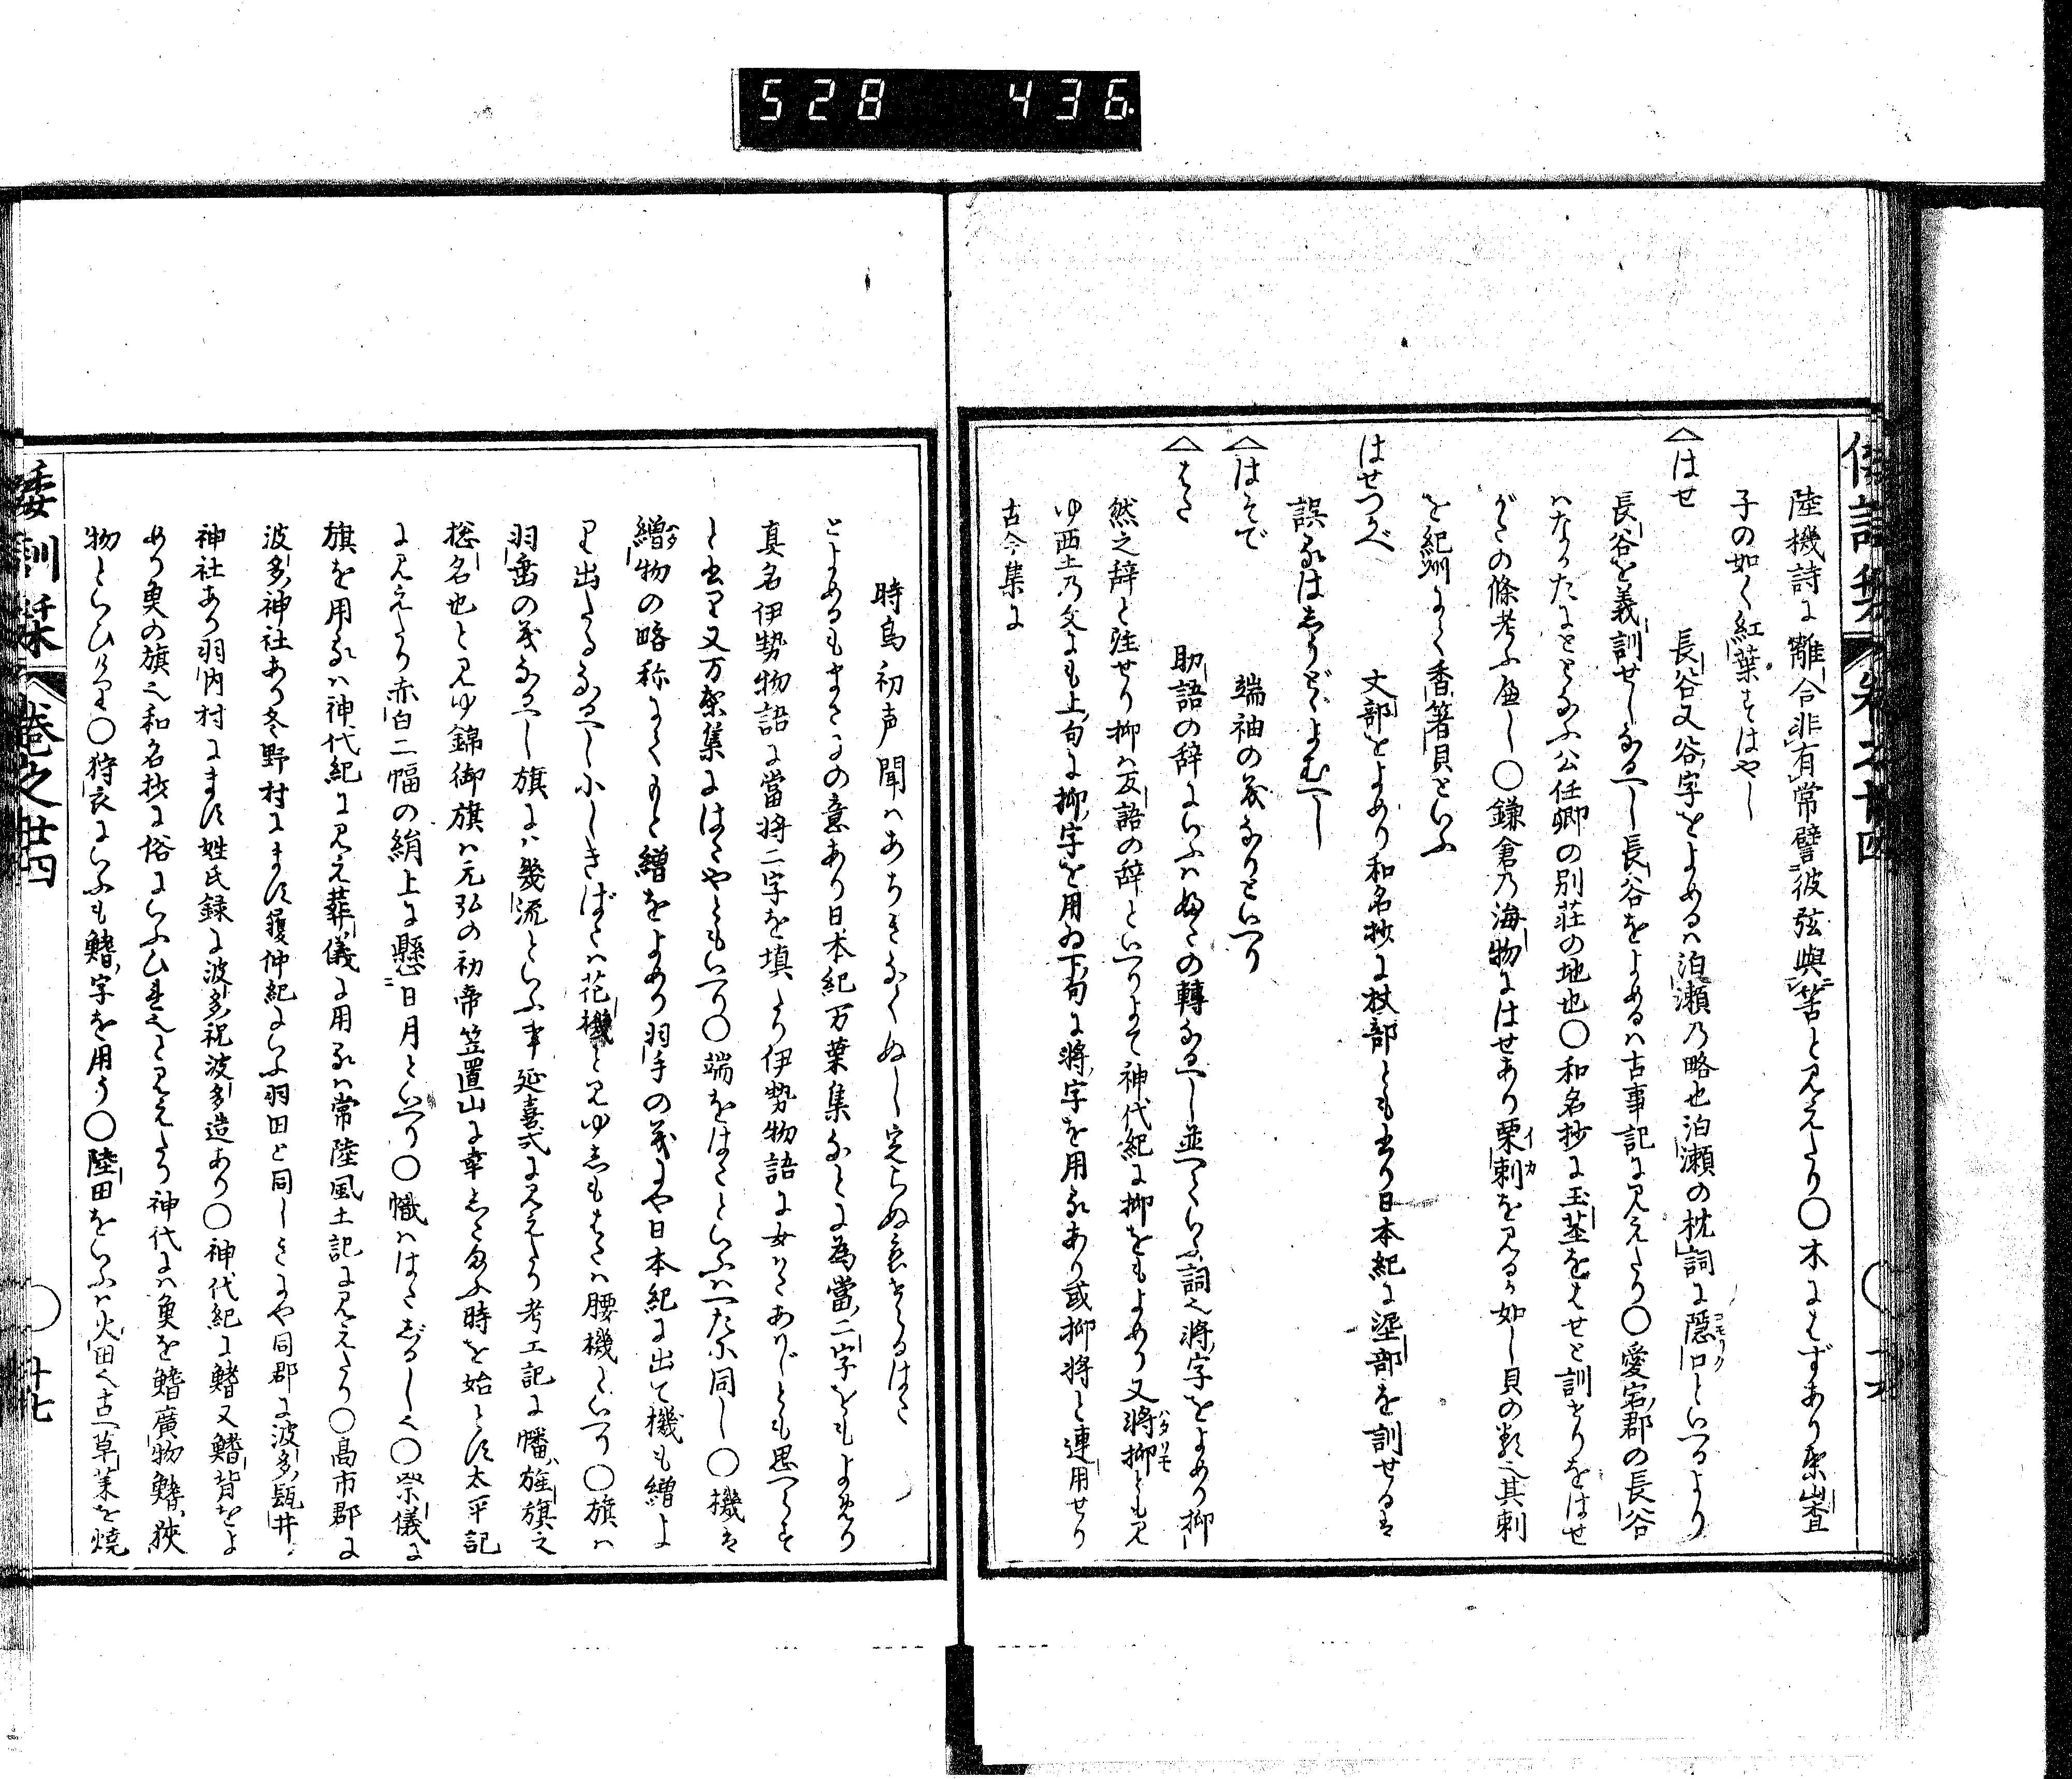 528 436
陸機詩に離合非有常譬彼弦與筈と見えたり〇木にはずあり梨山査
子の如く紅葉すはやし
はせ 長谷又谷字をよめるハ泊瀬乃略也泊瀬の枕詞に隠口といへるより
長谷を義訓せしなるへし長谷をよめるハ古事記に見えたり〇愛宕郡の長谷
ハなかたにととなふ公任卿の別荘の地也〇和名抄に玉茎をはせと訓せりをはせ
がたの條考ふ廬し〇鎌倉乃海物にはせあり栗刺を見るか如し貝の類也其刺
を紀州にて香箸貝といふ
はせつかべ 丈部をよめり和名抄に杖部とも書り日本紀に埿部を訓せるは
誤るはしりどよむへし
はそで 端袖の義なりといへり
はた 助語の辞にいふハ又の轉なるへし並へていふ詞也将字をよめり抑
然之辞と注せり抑ハ反語の辞といへりよて神代紀に抑をもよめり又将抑とも見
ゆ西土乃文にも上句に抑字を用ゐ下句に将字を用るあり或抑将と連用せり
古今集に
倭訓栞 巻之廿四
時鳥初声聞ハあちきなくぬし定らぬ恋せらるはた
とよめるもまさにの意あり日本紀万葉集なとに為當二字をもよめり
真名伊勢物語に當将二字を填たり伊勢物語に女はたあハじとも思へらす
と書り又万葉集にはたやともいへり〇端をはたといふハへた亦同し〇機は
繒物の略称にてもと繒をよめり羽手の義にや日本紀に出て機も繒よ
り出たるなるへし小しきばたハ花機と見ゆしもはたハ腰機といへり〇旗ハ
羽垂の義なるへし旗にハ幾流といふ事延喜式に見えたり考工記に幡旌旗之
総名也と見ゆ錦御旗ハ元弘の初帝笠置山に幸したまふ時を始とす太平記
に見えたり赤白二幅の絹上に懸日月といへり〇幟ハはたじるし也〇祭儀に
旗を用るハ神代紀に見え葬儀に用るハ常陸風土記に見えたり〇高市郡に
波多神社あり冬野村にます履仲紀にいふ羽田と同しきにや同郡に波多甕井
神社あり羽内村にます姓氏録に波多祝波多造あり〇神代紀に鰭又鰭背をよ
めり魚の旗也和名抄に俗にいふひれ也と見えたり神代にハ魚を鰭廣物鰭狭
物といひけり〇狩衣にいふも鰭字を用う〇陸田をいふハ火田也古へ草莱を焼
倭訓栞 巻之廿四 廿七